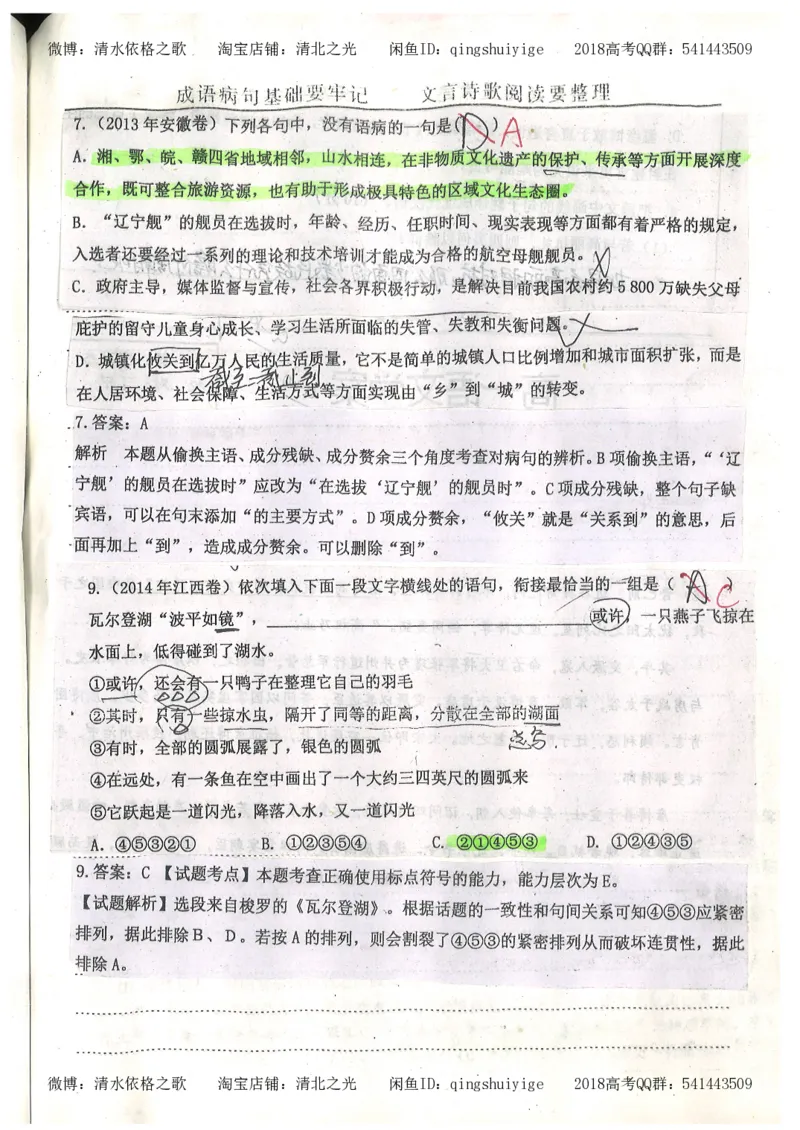 微博：清水依格之歌 淘宝店铺：清北之光 闲鱼ID：qingshuiyige 2018高考QQ群：541443509
成语病句基础要牢记 文言诗歌阅读要整理
7.（2013年安徽卷）下列各句中，没有语病的一句是（D）A
A. 湘、鄂、皖、赣四省地域相邻，山水相连，在非物质文化遗产的保护、传承等方面开展深度
合作，既可整合旅游资源，也有助于形成极具特色的区域文化生态圈。
B. “辽宁舰”的舰员在选拔时，年龄、经历、任职时间、现实表现等方面都有着严格的规定，
入选者还要经过一系列的理论和技术培训才能成为合格的航空母舰舰员。
C. 政府主导，媒体监督与宣传，社会各界积极行动，是解决目前我国农村约5 800万缺失父母
庇护的留守儿童身心成长、学习生活所面临的失管、失教和失衡问题。
D. 城镇化攸关到亿万人民的生活质量，它不是简单的城镇人口比例增加和城市面积扩张，而是
在人居环境、社会保障、生活方式等方面实现由“乡”到“城”的转变。
7.答案：A
解析 本题从偷换主语、成分残缺、成分赘余三个角度考查对病句的辨析。B项偷换主语，“‘辽
宁舰’的舰员在选拔时”应改为“在选拔‘辽宁舰’的舰员时”。C项成分残缺，整个句子缺
宾语，可以在句末添加“的主要方式”。D项成分赘余，“攸关”就是“关系到”的意思，后
面再加上“到”，造成成分赘余。可以删除“到”。
9.（2014年江西卷）依次填入下面一段文字横线处的语句，衔接最恰当的一组是（A）C
瓦尔登湖“波平如镜”，____________________或许，一只燕子飞掠在
水面上，低得碰到了湖水。
①或许，还会有一只鸭子在整理它自己的羽毛
②其时，只有一些掠水虫，隔开了同等的距离，分散在全部的湖面
③有时，全部的圆弧展露了，银色的圆弧
④在远处，有一条鱼在空中画出了一个大约三四英尺的圆弧来
⑤它跃起是一道闪光，降落入水，又一道闪光
A. ④⑤③②① B. ①②③⑤④ C. ②①④⑤③ D. ①②④③⑤
9.答案：C 【试题考点】本题考查正确使用标点符号的能力，能力层次为E。
【试题解析】选段来自梭罗的《瓦尔登湖》。根据话题的一致性和句间关系可知④⑤③应紧密
排列，据此排除B、D。若按A的排列，则会割裂了④⑤③的紧密排列从而破坏连贯性，据此
排除A。
微博：清水依格之歌 淘宝店铺：清北之光 闲鱼ID：qingshuiyige 2018高考QQ群：541443509